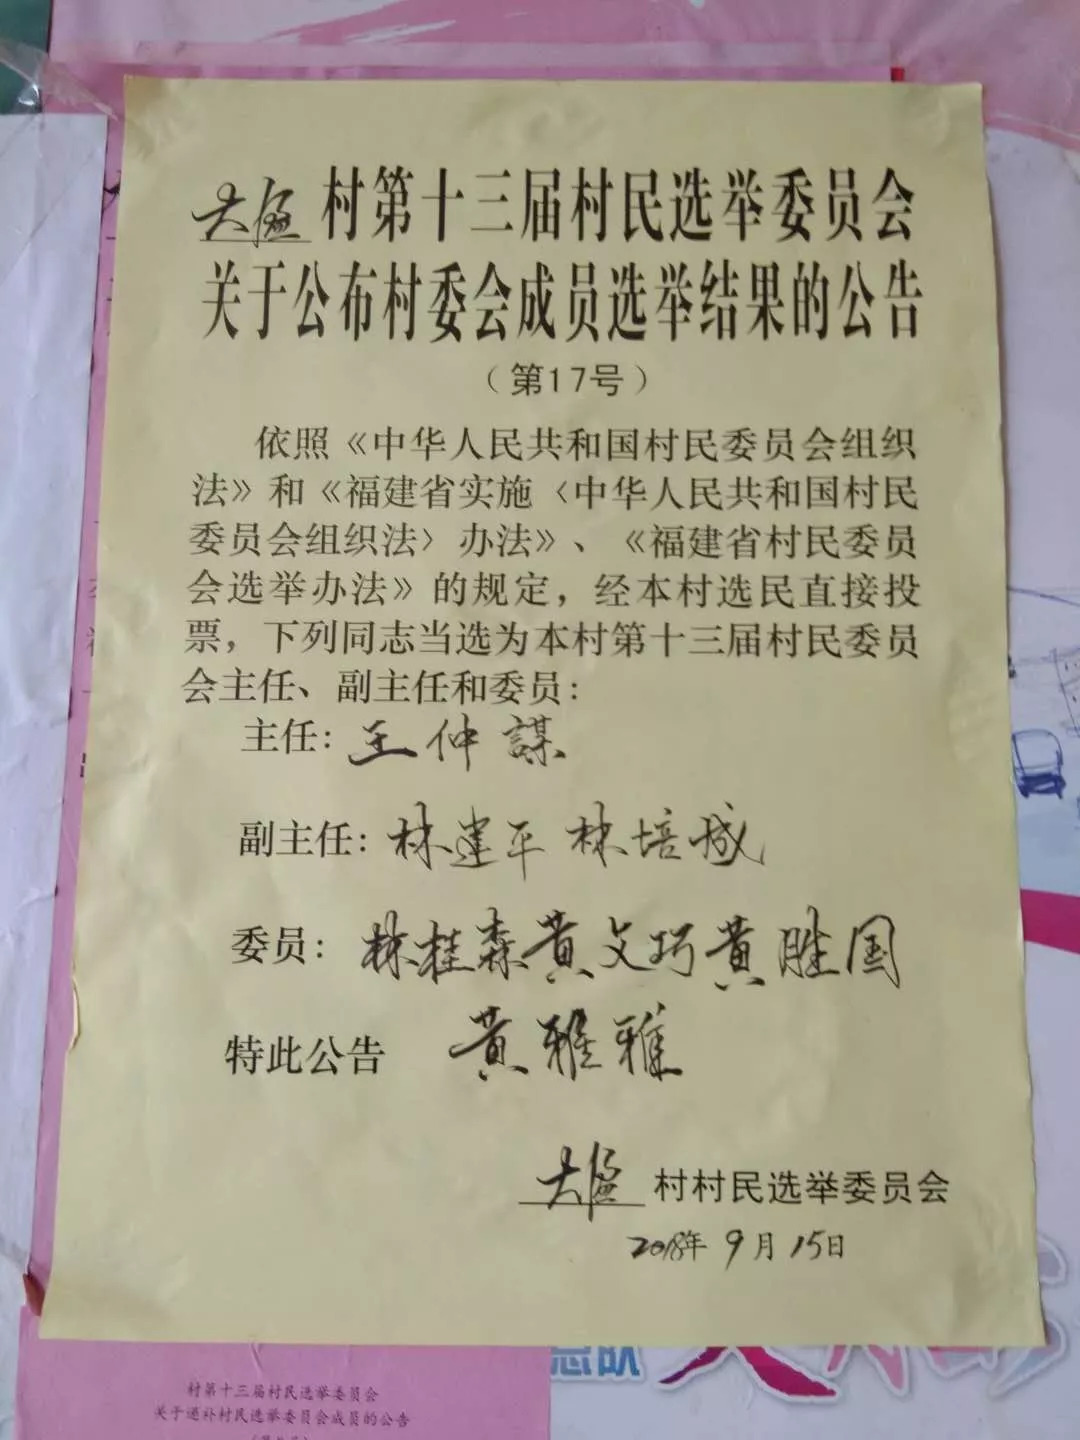 大盈村第十三届村民选举委员会
关于公布村委会成员选举结果的公告
（第17号）
依照《中华人民共和国村民委员会组织
法》和《福建省实施〈中华人民共和国村民
委员会组织法〉办法》、《福建省村民委员
会选举办法》的规定，经本村选民直接投
票，下列同志当选为本村第十三届村民委员
会主任、副主任和委员：
主任：王仲謀
副主任：林建平 林培城
委员：林桂森 黄文巧 黄胜国
特此公告 黄雅雅
大盈村村民选举委员会
2018年9月15日
村第十三届村民选举委员会
关于递补村民选举委员会成员的公告